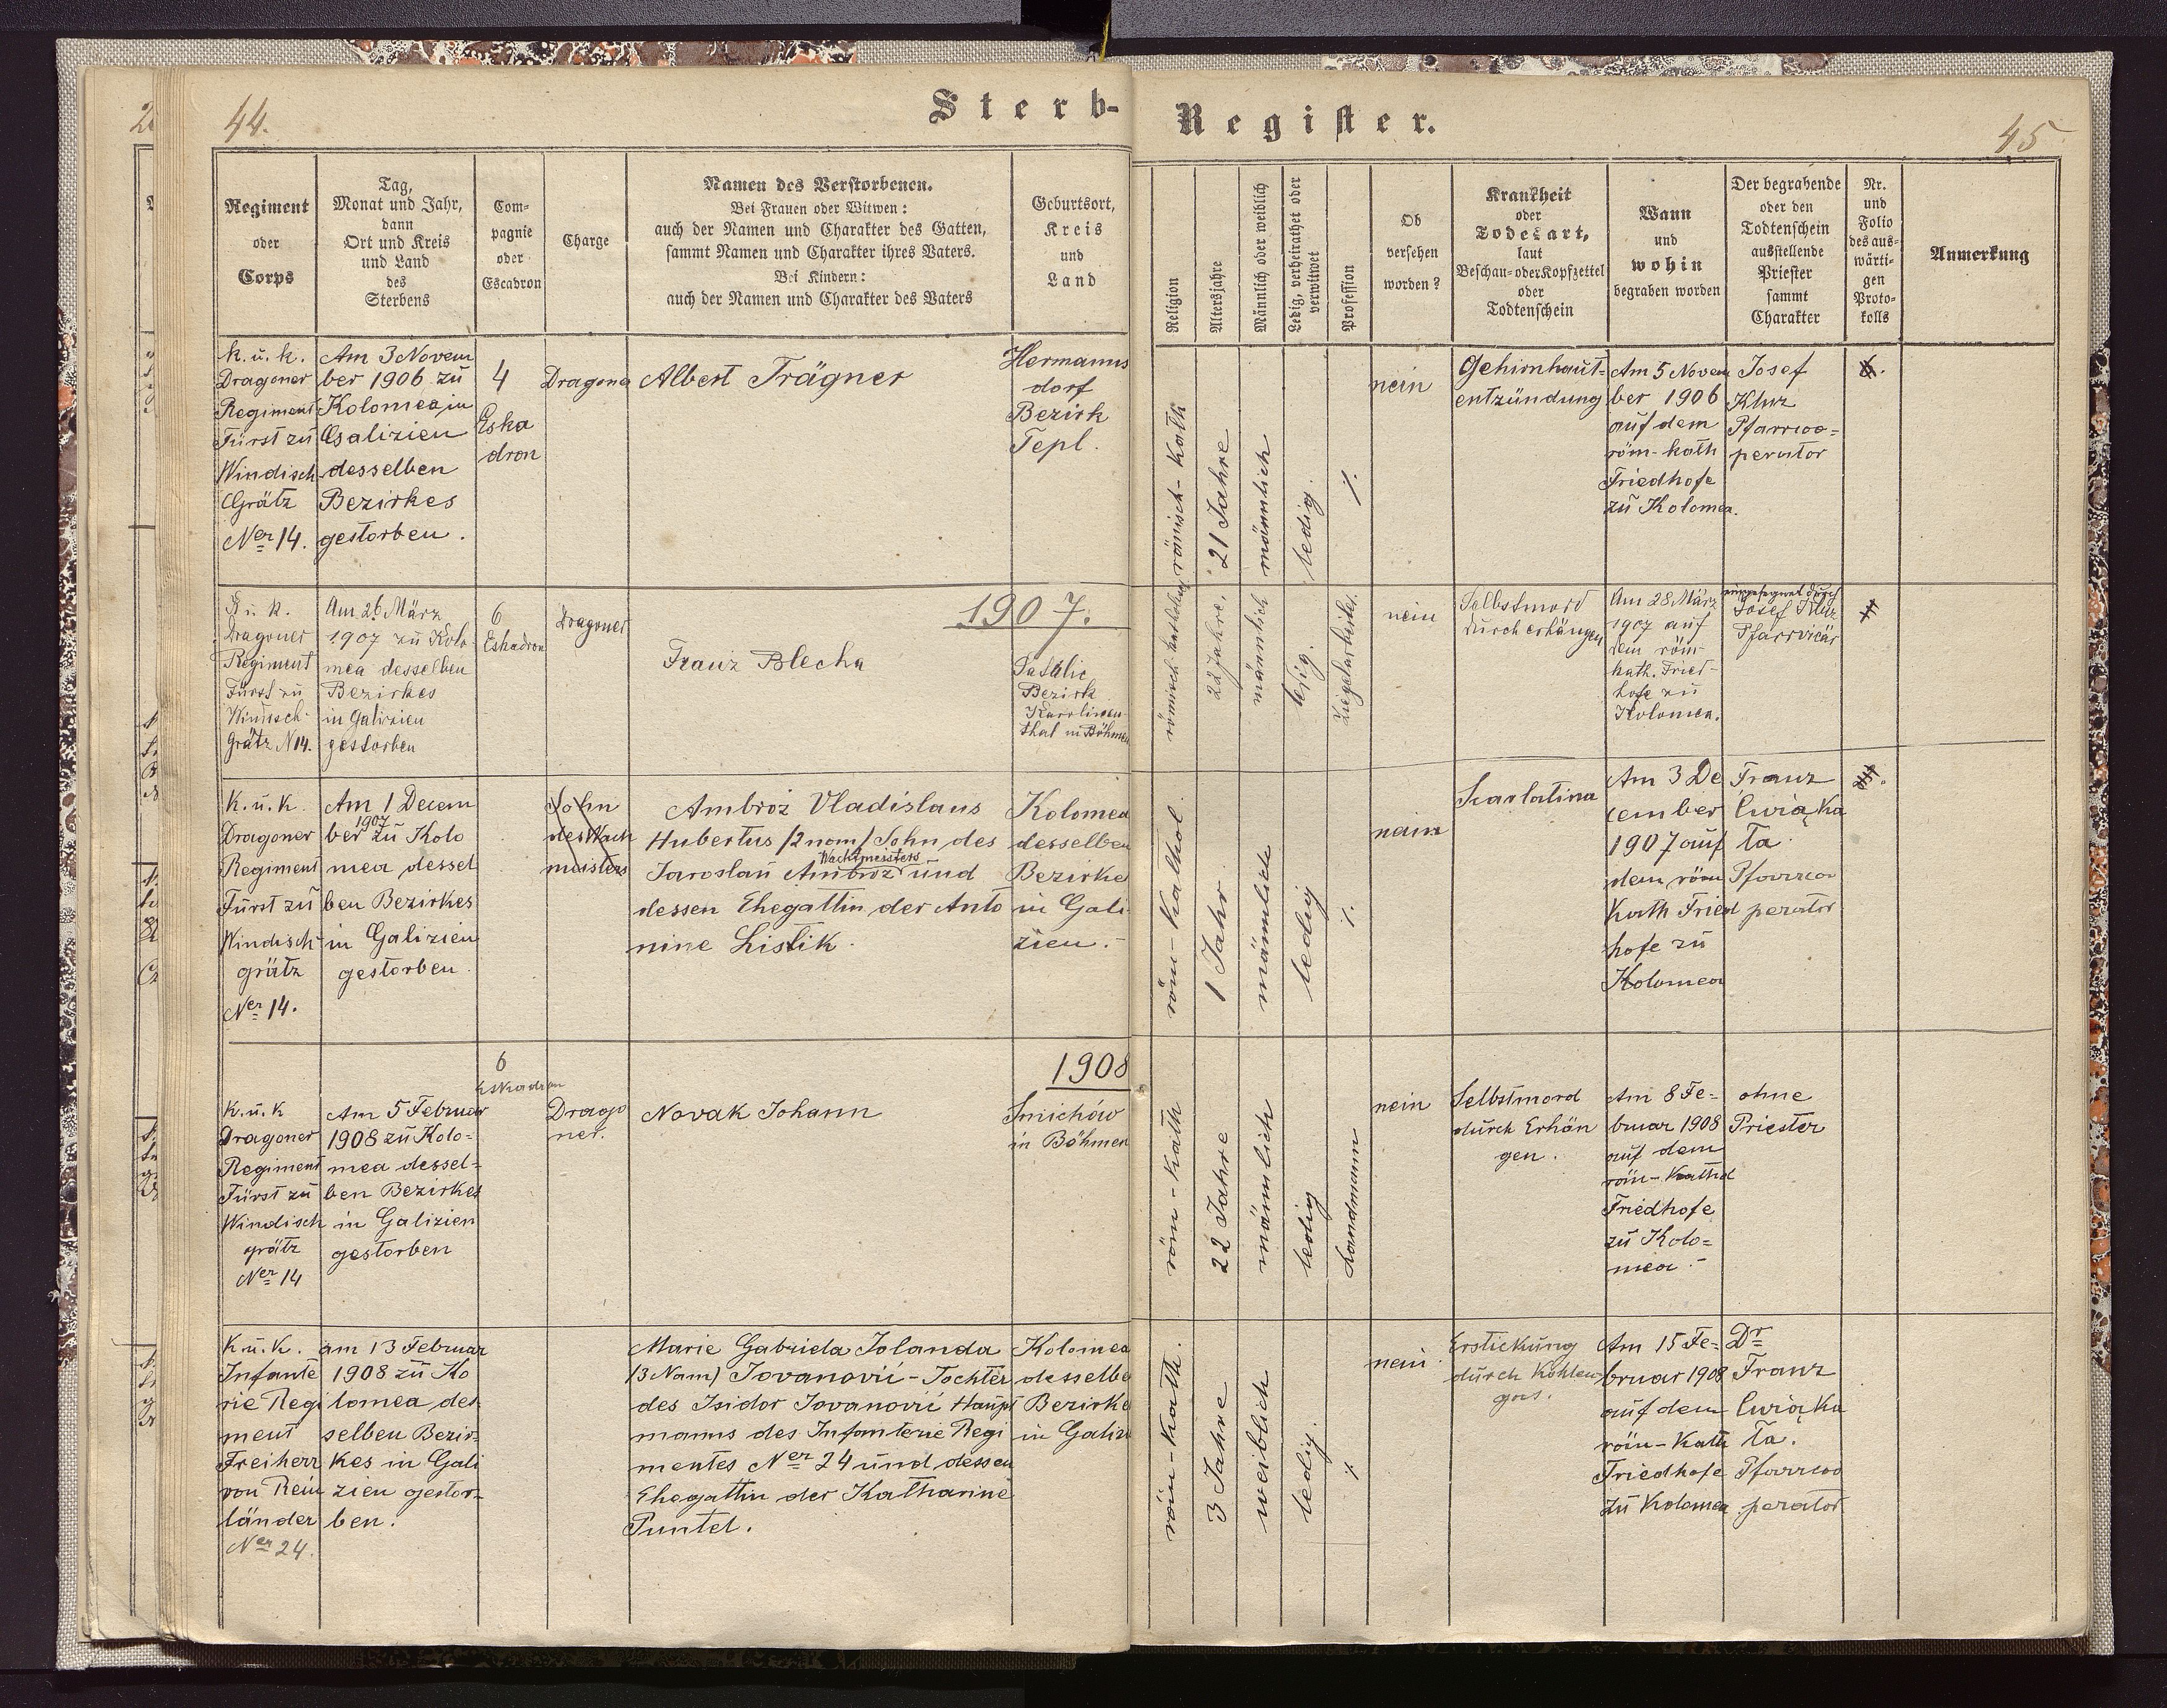 44.
Sterb-
Register.
45
Regiment
oder
Corps
Tag,
Monat und Jahr,
dann
Ort und Kreis
und Land
des
Sterbens
Com-
pagnie
oder
Escadron
Charge
Namen des Verstorbenen.
Bei Frauen oder Witwen:
auch der Namen und Charakter des Gatten,
sammt Namen und Charakter ihres Vaters.
Bei Kindern:
auch der Namen und Charakter des Vaters
Geburtsort,
Kreis
und
Land
Religion
Altersjahre
Männlich oder weiblich
Ledig, verheirathet oder
verwitwet
Profession
Ob
versehen
worden?
Krankheit
oder
Todesart,
laut
Beschau- oder Kopfzettel
oder
Todtenschein
Wann
und
wohin
begraben worden
Der begrabende
oder den
Todtenschein
ausstellende
Priester
sammt
Charakter
Nr.
und
Folio
des aus-
wärti-
gen
Proto-
kolls
Anmerkung
k. u. k.
Dragoner
Regiment
Fürst zu
Windisch
Grätz
Ner 14.
Am 3 Novem
ber 1906 zu
Kolomea in
Galizien
desselben
Bezirkes
gestorben.
4
Eska
dron
Dragoner
Albert Trägner
Hermanns
dorf
Bezirk
Tepl.
römisch-kath
21 Jahre
männlich
ledig.
/.
nein
Gehirnhaut-
entzündung
Am 5 Novem
ber 1906
auf dem
röm-kath
Friedhofe
zu Kolomea.
Josef
Kluz
Pfarrcoo=
perator
1907.
K. u. k.
Dragoner
Regiment
Fürst zu
Windisch-
Grätz N 14.
Am 26 März
1907 zu Kolo-
mea desselben
Bezirkes
in Galizien
gestorben
6
Eskadron
Dragoner
Franz Blecha
Satalic
Bezirk
Karolinen-
thal in Böhmen
22 Jahre.
männlich
ledig.
Ziegelarbeiter.
nein
Selbstmord
durch erhängen
Am 28 März
1907 auf
dem röm-
kath. Fried-
hofe zu
Kolomea.
eingesegnet durch
Josef Kluz
Pfarrvicär
K. u. k.
Dragoner
Regiment
Fürst zu
Windisch-
grätz
Ner 14.
Am 1 Decem
1907
ber zu Kolo
mea dessel
ben Bezirkes
in Galizien
gestorben.
Sohn
des Wach
meisters
Ambrož Vladislaus
Hubertus /2 nom/ Sohn des
Wachtmeisters
Jaroslau Ambrož und
dessen Ehegattin der Anto
nine Listik.
Kolomea
desselben
Bezirke
in Gali
zien.-
röm-kathol.
1 Jahr
männlich
ledig
/.
nein
Scarlatina
Am 3 De
cember
1907 auf
dem röm
Kath Fried
hofe zu
Kolomea
Franz
Ćwiąka
ła
Pfarrcoo
perator
1908
K. u. k
Dragoner
Regiment
Fürst zu
Windisch
grätz
Ner 14
Am 5 Februar
1908 zu Kolo=
mea dessel=
ben Bezirkes
in Galizien
gestorben
6
Eskadron
Drago
ner.
Novak Johann
Smichów
in Böhmen
röm-kath
22 Jahre
männlich
ledig
Landmann
nein
Selbstmord
durch Erhän
gen.
Am 8 Fe=
bruar 1908
auf dem
röm-kathol
Friedhofe
zu Kolo=
mea.-
ohne
Priester
K. u. K.
Infante
rie Regi
ment
Freiherr
von Rein
länder
Ner 24.
am 13 Februar
1908 zu Ko
lomea des
selben Bezir=
kes in Gali
zien gestor-
ben.
Marie Gabriela Jolanda
/3 Nam) Jovanović - Tochter
des Isidor Jovanović Haupt
manns des Infanterie Regi
mentes Ner 24 und dessen
Ehegattin der Katharine
Puntel.
Kolomea
desselbe
Bezirke
in Galiz
röm-kath.
3 Jahre
weiblich
ledig.
/.
nein.
Erstickung
durch Kohlen
gas.
Am 15 Fe=
bruar 1908
auf dem
röm-Kath
Friedhofe
zu Kolomea
Dr
Franz
Ćwiąka
ła.
Pfarrcoo
perator